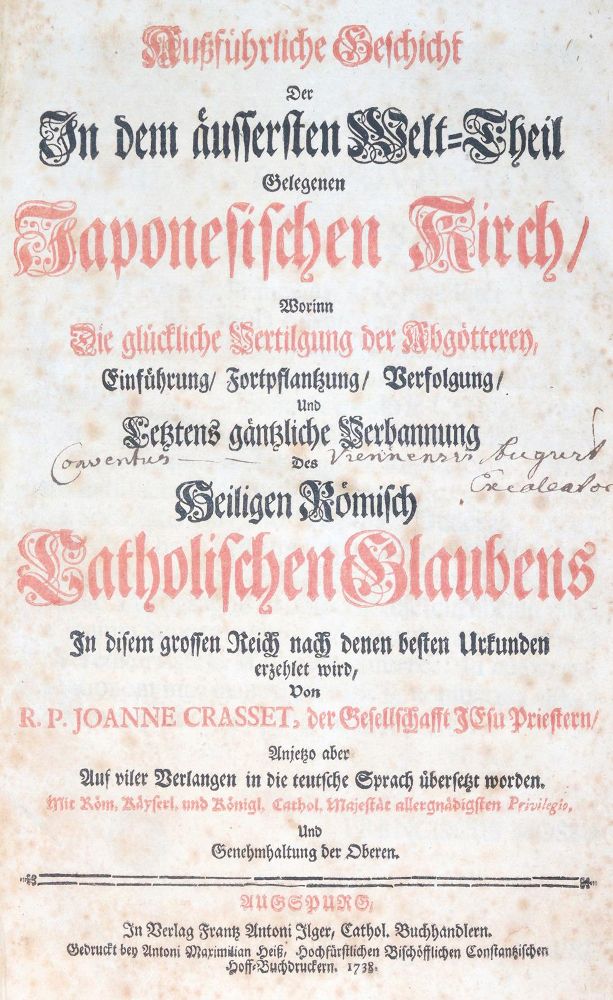 Außführliche Geschicht
Der
In dem äussersten Welt-Theil
Gelegenen
Japonesischen Kirch/
Worinn
Die glückliche Vertilgung der Abgötterey,
Einführung/ Fortpflantzung/ Verfolgung/
Und
Letztens gäntzliche Verbannung
Conventus Viennensis August
Des
Excalceator
Heiligen Römisch
Catholischen Glaubens
In disem grossen Reich nach denen besten Urkunden
erzehlet wird,
Von
R. P. JOANNE CRASSET, der Gesellschafft JEsu Priestern/
Anjetzo aber
Auf viler Verlangen in die teutsche Sprach übersetzt worden.
Mit Röm. Käyserl. und Königl. Cathol. Majestät allergnädigsten Privilegio.
Und
Genehmhaltung der Oberen.
AUGSPURG,
In Verlag Frantz Antoni Ilger, Cathol. Buchhandlern.
Gedruckt bey Antoni Maximilian Heiß, Hochfürstlichen Bischöfflichen Constantzischen
Hoff-Buchdruckern. 1738.